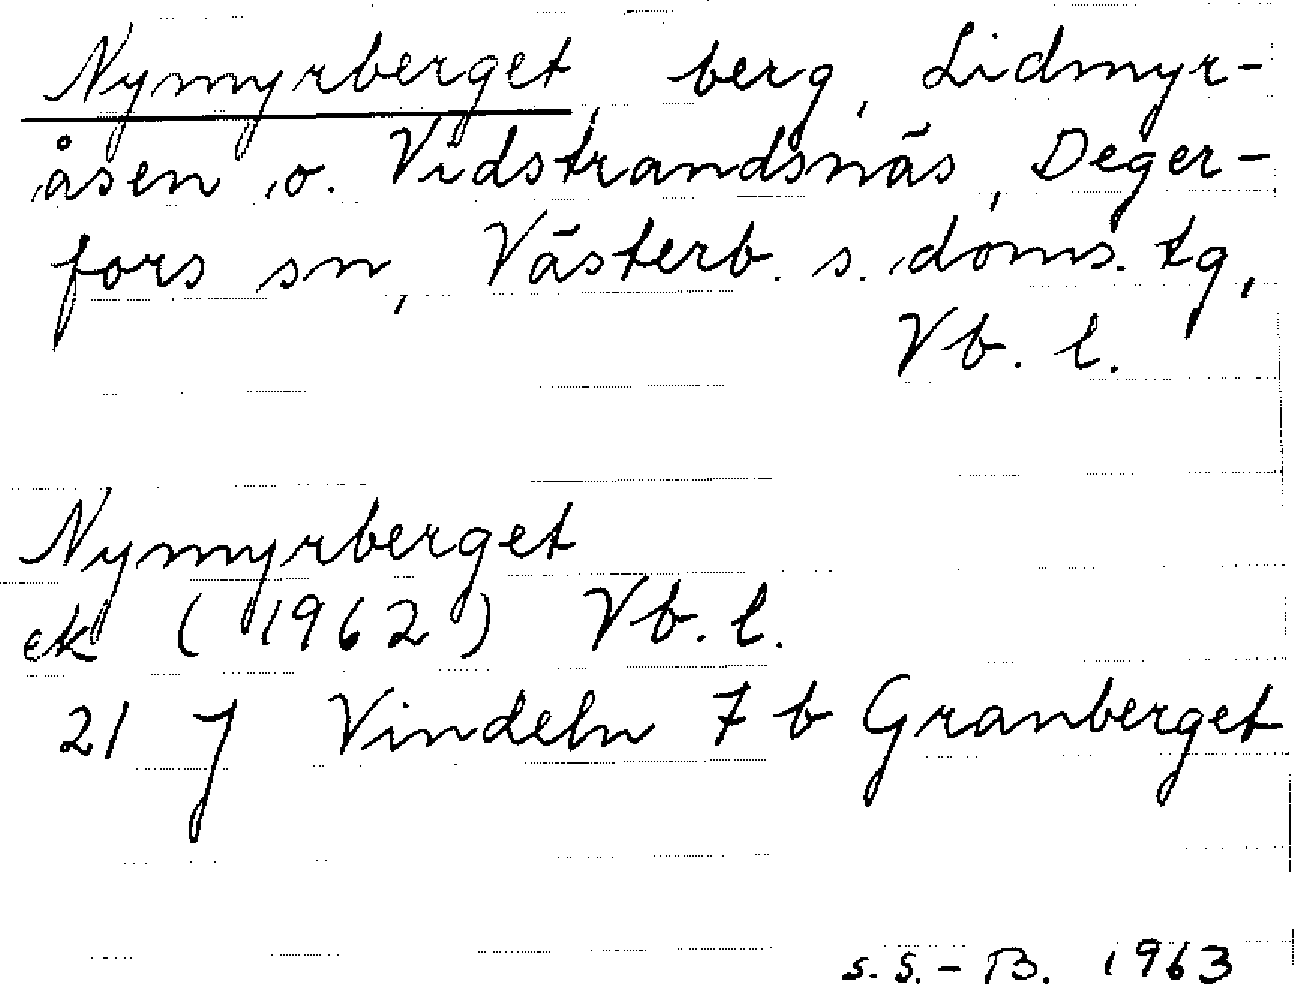 Nymyrberget, berg, Lidmyr-
åsen o. Vidstrandsnäs, Deger-
fors sn, Västerb. s. doms. tg,
Vb. l.
Nymyrberget
ek (1962) Vb. l.
21 J Vindeln 7 b Granberget
S. S. - B. 1963